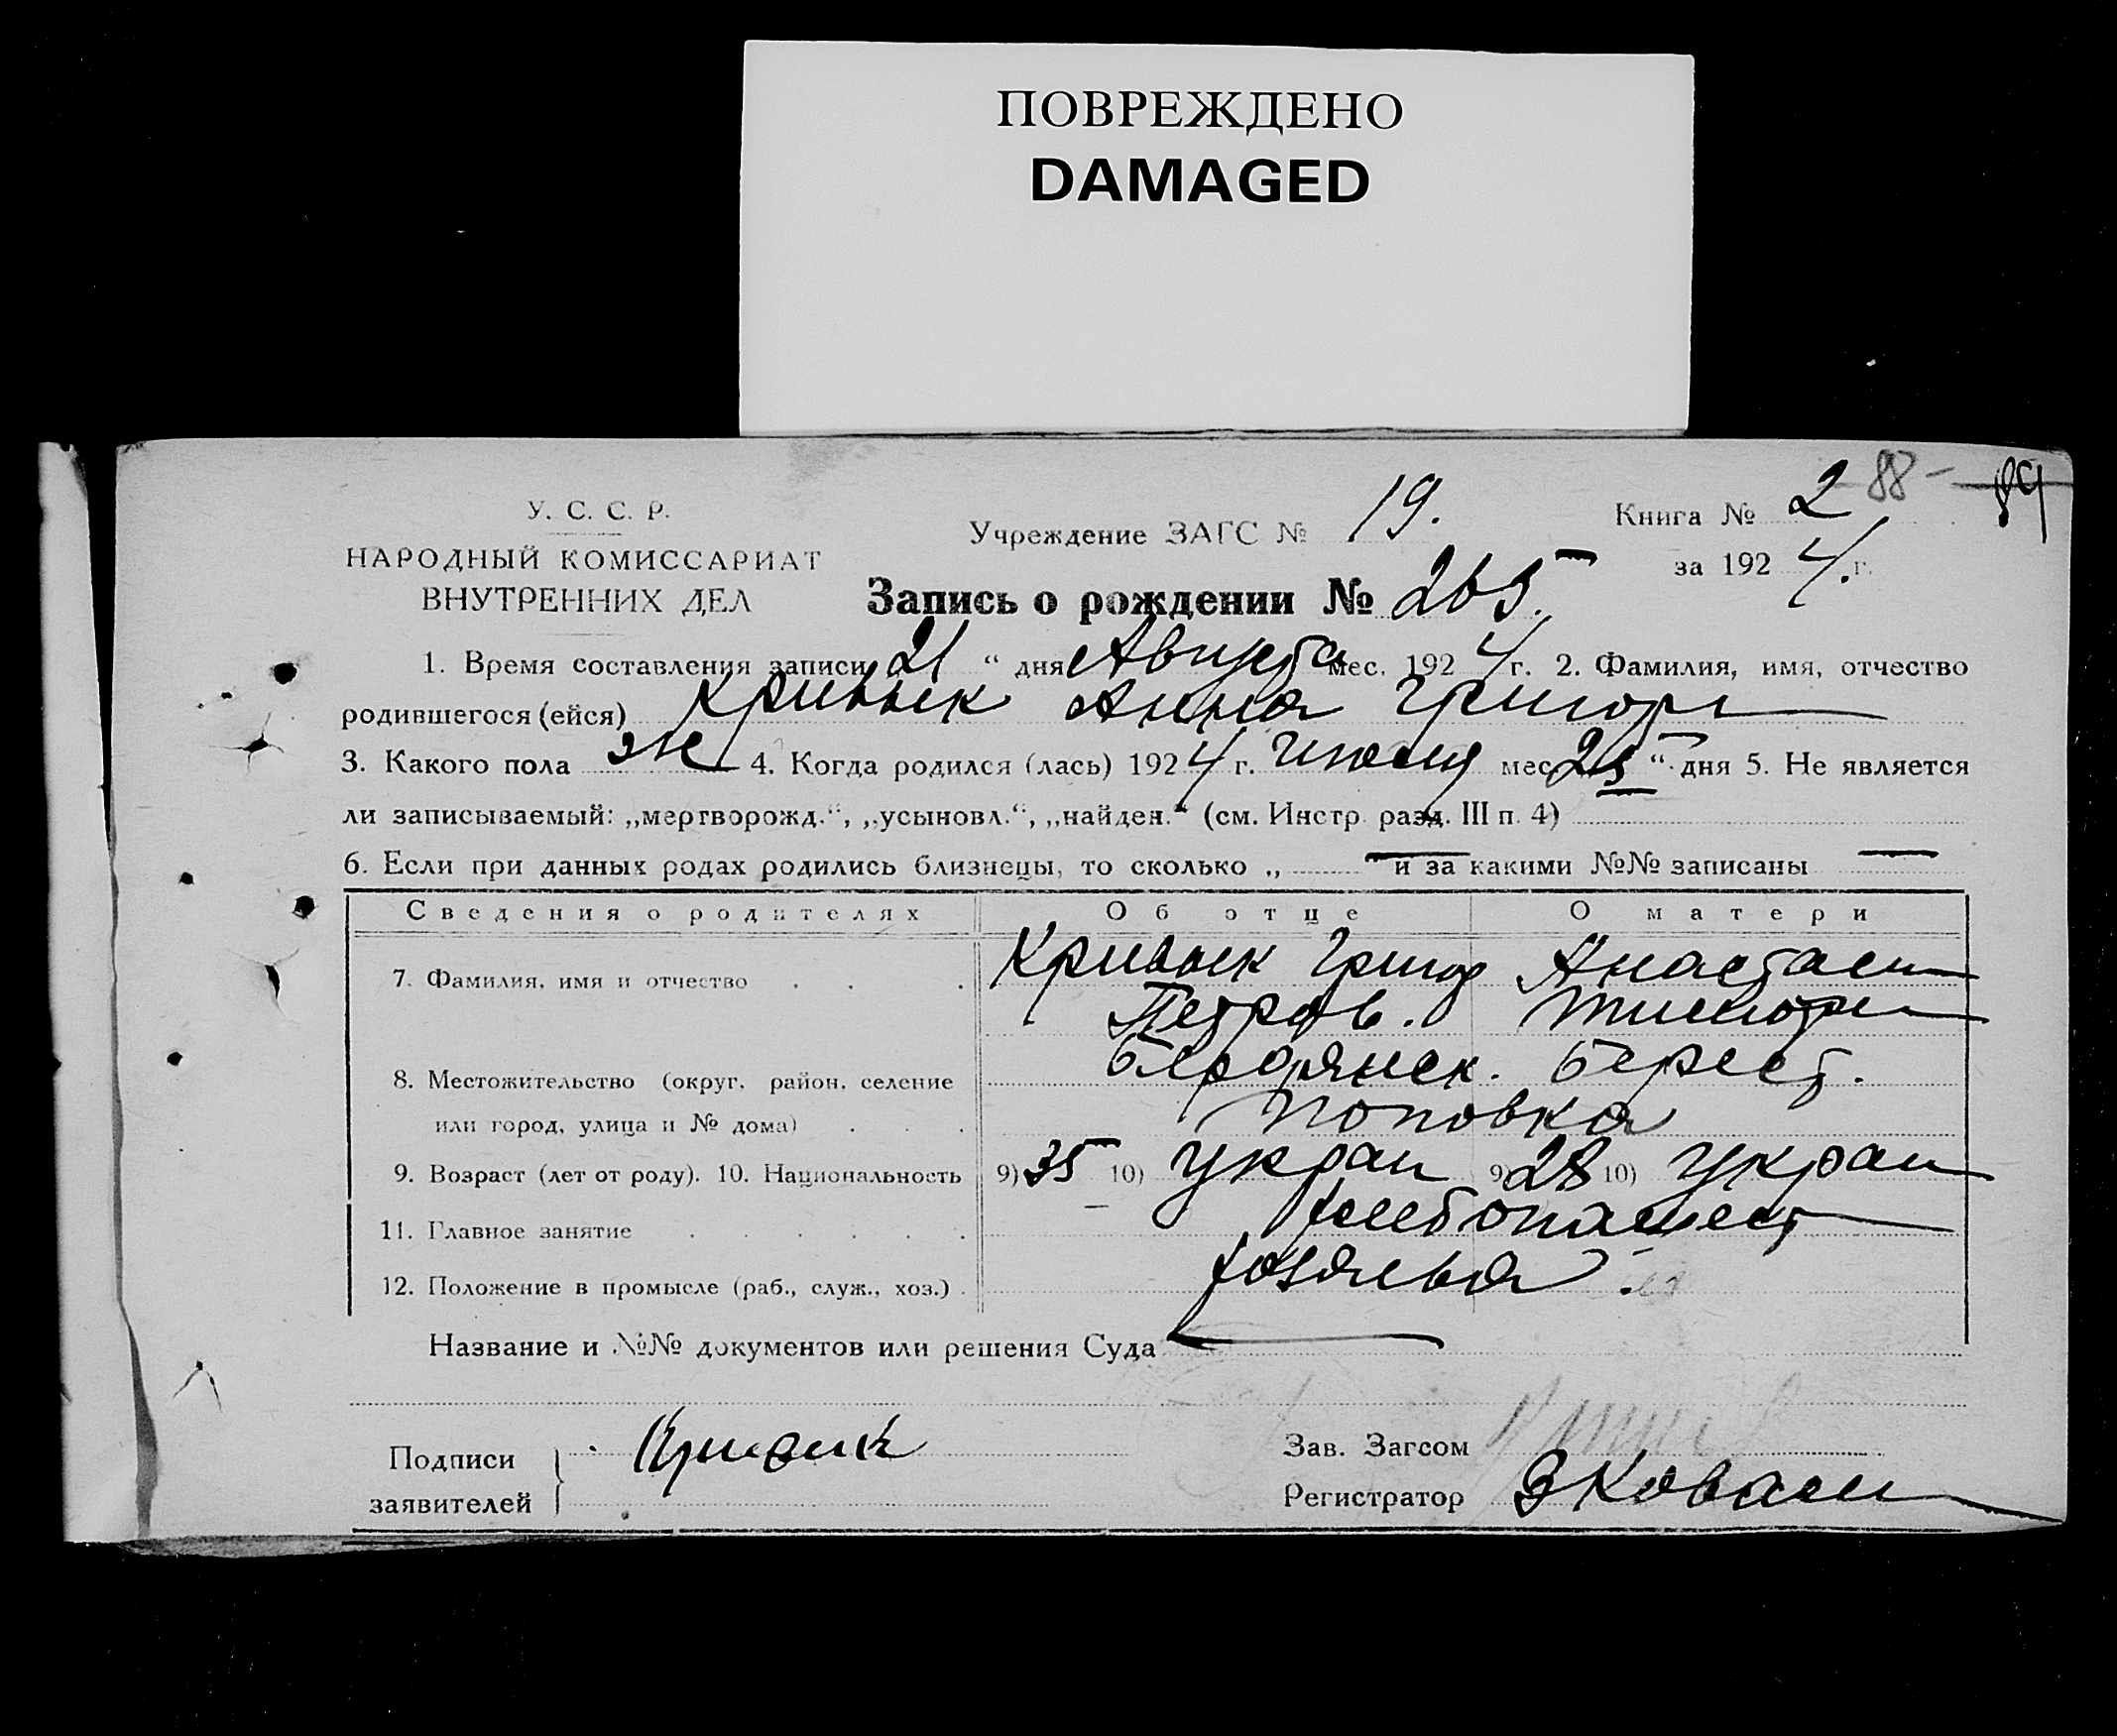 ПОВРЕЖДЕНО
DAMAGED
88 —
У. С. С. Р.
НАРОДНЫЙ КОМИССАРИАТ
ВНУТРЕННИХ ДЕЛ
Учреждение ЗАГС № 19.
Книга № 2
за 1924. г.
Запись о рождении № 265.
1. Время составления записи 21 “ дня Августа мес. 1924 г. 2. Фамилия, имя, отчество
родившегося (ейся) Кривык Анна Григорı
3. Какого пола ж 4. Когда родился (лась) 1924 г. Июля мес. 25 “ дня 5. Не является
ли записываемый: „мертворожд.“, „усыновл.“, „найден.“ (см. Инстр. разд. III п. 4)
6. Если при данных родах родились близнецы, то сколько „ — “ и за какими №№ записаны —
Сведения о родителях Об отце О матери
7. Фамилия, имя и отчество . . . Кривык Григор Анастаси
Петров. Тимофе
8. Местожительство (округ, район, селение Бердянск. Берест.
или город, улица и № дома) . . . Поповка
9. Возраст (лет от роду). 10. Национальность 9) 35 10) Украи 9) 28 10) Украи
11. Главное занятие . . . . . . Хлебопашест
12. Положение в промысле (раб., служ., хоз.) . Хозяева
Название и №№ документов или решения Суда —
Подписи заявителей Кривик
Зав. Загсом
Регистратор ЗКовали